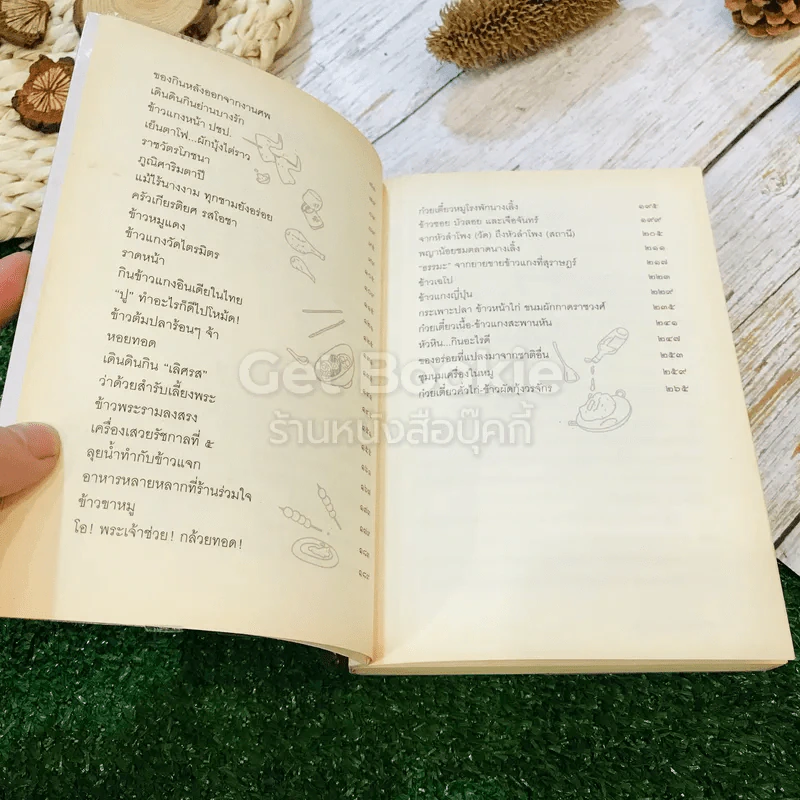 ของกินหลังออกจากงานศพ
เดินดินกินย่านบางรัก
ข้าวแกงหน้า ปชป.
เย็นตาโฟ...ผักบุ้งไต่ราว
ราชวัตรโภชนา
ภูณิศาริมตาปี
แม้ไร้นางงาม ทุกชามยังอร่อย
ครัวเกียรติยศ รสโอชา
ข้าวหมูแดง
ข้าวแกงวัดไตรมิตร
ราดหน้า
กินข้าวแกงอินเดียในไทย
"ปู" ทำอะไรก็ดีไปไหม้ด!
ข้าวต้มปลาร้อนๆ จ้า
หอยทอด
เดินดินกิน "เลิศรส"
ว่าด้วยสำรับเลี้ยงพระ
ข้าวพระรามลงสรง
เครื่องเสวยรัชกาลที่ ๕
ลุยน้ำทำกับข้าวแจก
อาหารหลายหลากที่ร้านร่วมใจ
ข้าวขาหมู
โอ! พระเจ้าช่วย! กล้วยทอด!
ก๋วยเตี๋ยวหมูโรงพักนางเลิ้ง ๑๙๕
ข้าวซอย บัวลอย และเจือจันทร์ ๑๙๙
จากหัวลำโพง (วัด) ถึงหัวลำโพง (สถานี) ๒๐๕
พญาน้อยชมตลาดนางเลิ้ง ๒๑๑
"ธรรมะ" จากยายขายข้าวแกงที่สุราษฎร์ ๒๑๗
ข้าวเฉโป ๒๒๓
ข้าวแกงญี่ปุ่น ๒๒๙
กระเพาะปลา ข้าวหน้าไก่ ขนมผักกาดราชวงศ์ ๒๓๕
ก๋วยเตี๋ยวเนื้อ-ข้าวแกงสะพานหัน ๒๔๑
หัวหิน...กินอะไรดี ๒๔๗
ของอร่อยที่แปลงมาจากชาติอื่น ๒๕๓
ชุมนุมเครื่องในหมู ๒๕๙
ก๋วยเตี๋ยวคั่วไก่-ข้าวผัดกุ้งวรจักร ๒๖๕
Get Bookie
ร้านหนังสือบุ๊คกี้